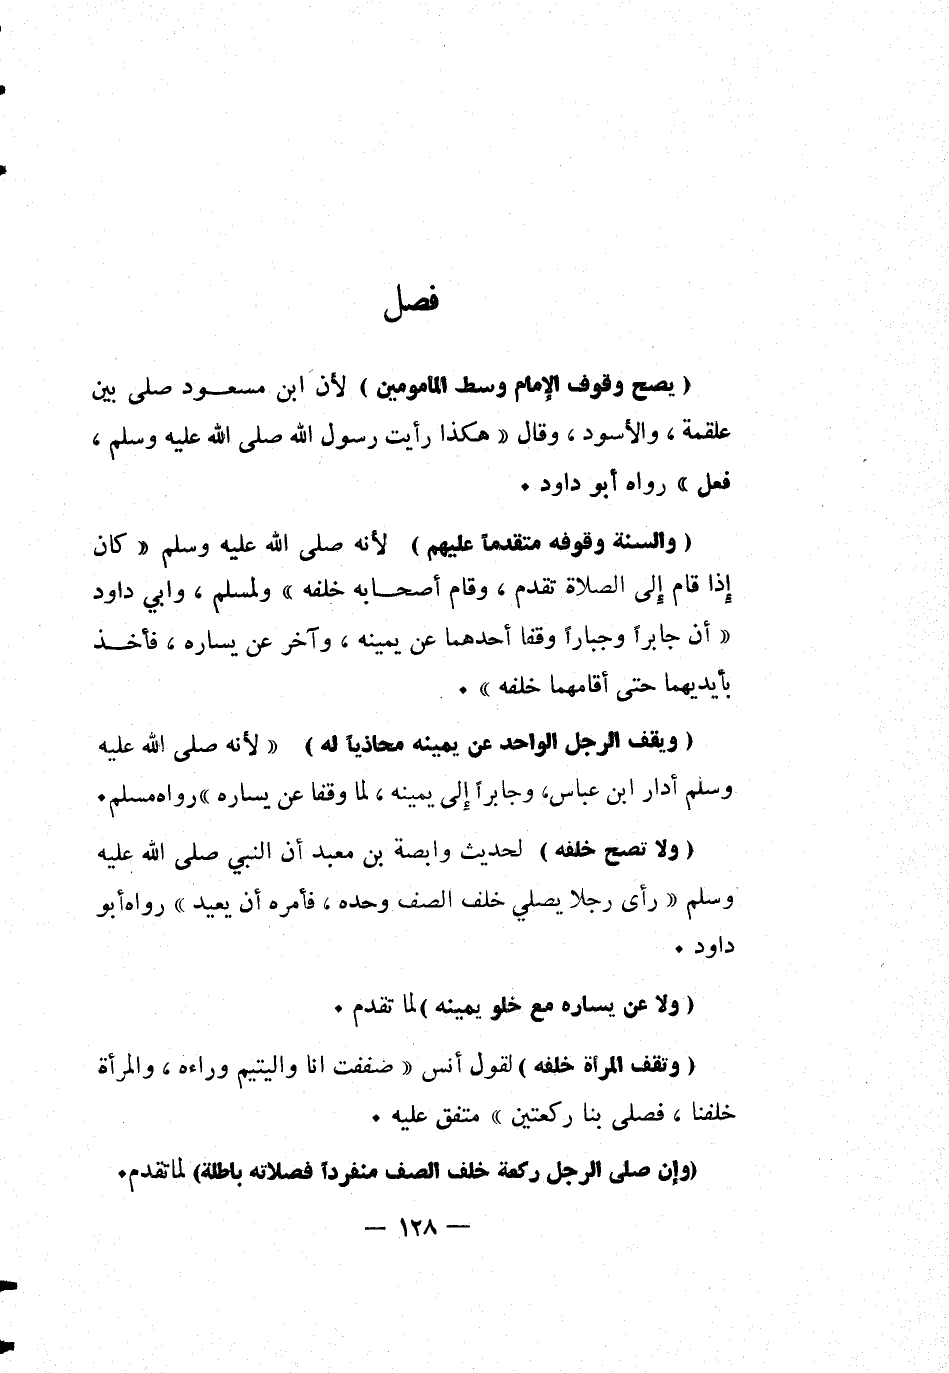 فصل
( يصح وقوف الإمام وسط المأمومين ) لأن ابن مسعـود صلى بين
علقمة ، والأسود ، وقال « هكذا رأيت رسول الله صلى الله عليه وسلم ،
فعل » رواه أبو داود .
( والسنة وقوفه متقدماً عليهم ) لأنه صلى الله عليه وسلم « كان
إذا قام إلى الصلاة تقدم ، وقام أصحـابه خلفه » ولمسلم ، وابي داود
« أن جابراً وجباراً وقفا أحدهما عن يمينه ، وآخر عن يساره ، فأخـذ
بأيديهما حتى أقامهما خلفه » .
( ويقف الرجل الواحد عن يمينه محاذياً له ) « لأنه صلى الله عليه
وسلم أدار ابن عباس، وجابراً إلى يمينه ، لما وقفا عن يساره » رواه مسلم.
( ولا تصح خلفه ) لحديث وابصة بن معبد أن النبي صلى الله عليه
وسلم « رأى رجلا يصلي خلف الصف وحده ، فأمره أن يعيد » رواه أبو
داود .
( ولا عن يساره مع خلو يمينه ) لما تقدم .
( وتقف المرأة خلفه ) لقول أنس « صففت انا واليتيم وراءه ، والمرأة
خلفنا ، فصلى بنا ركعتين » متفق عليه .
(وإن صلى الرجل ركعة خلف الصف منفرداً فصلاته باطلة) لما تقدم.
— ١٢٨ —